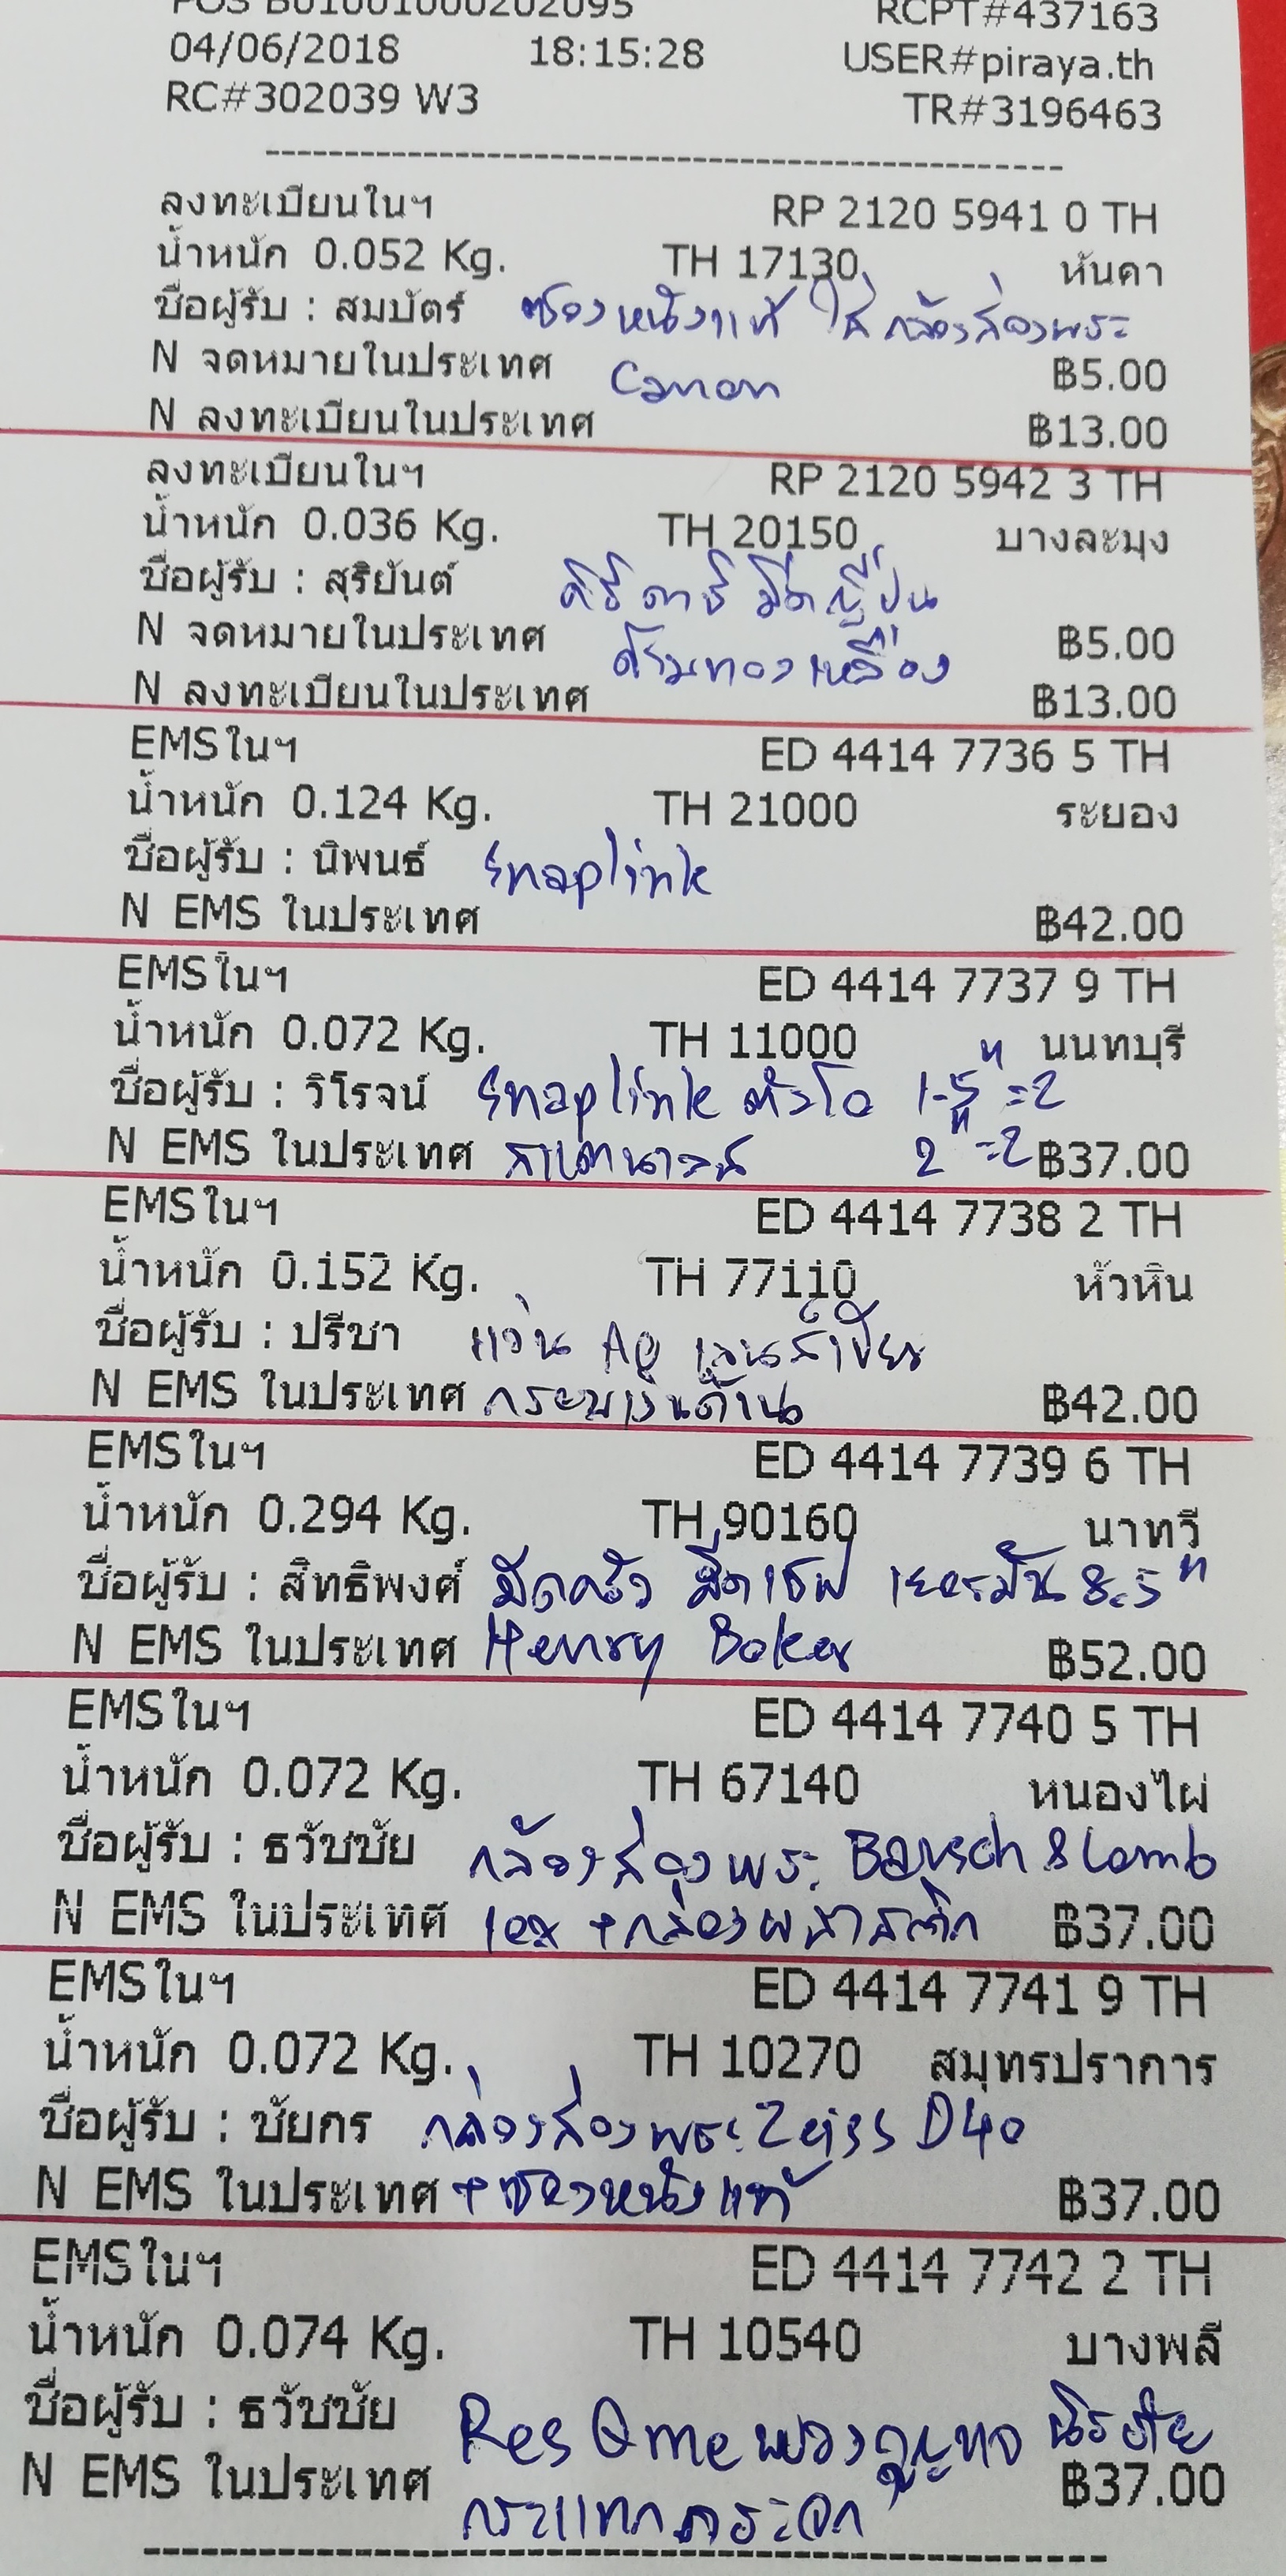 POS B01001000202095 RCPT#437163
04/06/2018 18:15:28 USER#piraya.th
RC#302039 W3 TR#3196463
ลงทะเบียนในฯ RP 2120 5941 0 TH
น้ำหนัก 0.052 Kg. TH 17130 หันคา
ชื่อผู้รับ : สมบัตร์ ซองหนังแท้ ใส่กล้องส่องพระ
N จดหมายในประเทศ Canon ฿5.00
N ลงทะเบียนในประเทศ ฿13.00
ลงทะเบียนในฯ RP 2120 5942 3 TH
น้ำหนัก 0.036 Kg. TH 20150 บางละมุง
ชื่อผู้รับ : สุริยันต์ คิริดาชิ มีดญี่ปุ่น
N จดหมายในประเทศ ด้ามทองเหลือง ฿5.00
N ลงทะเบียนในประเทศ ฿13.00
EMSในฯ ED 4414 7736 5 TH
น้ำหนัก 0.124 Kg. TH 21000 ระยอง
ชื่อผู้รับ : นิพนธ์ Snaplink
N EMS ในประเทศ ฿42.00
EMSในฯ ED 4414 7737 9 TH
น้ำหนัก 0.072 Kg. TH 11000 นนทบุรี
ชื่อผู้รับ : วิโรจน์ Snaplink ตัวโอ 1.5" =2
N EMS ในประเทศ 2" =2 ฿37.00
EMSในฯ ED 4414 7738 2 TH
น้ำหนัก 0.152 Kg. TH 77110 หัวหิน
ชื่อผู้รับ : ปรีชา แว่น AO เลนส์เขียว
N EMS ในประเทศ ฿42.00
EMSในฯ ED 4414 7739 6 TH
น้ำหนัก 0.294 Kg. TH 90160 นาทวี
ชื่อผู้รับ : สิทธิพงศ์ มีดครัว มีดเชฟ เยอรมัน 8.5"
N EMS ในประเทศ Henry Boker ฿52.00
EMSในฯ ED 4414 7740 5 TH
น้ำหนัก 0.072 Kg. TH 67140 หนองไผ่
ชื่อผู้รับ : ธวัชชัย กล้องส่องพระ Bausch & Lomb
N EMS ในประเทศ 10x +กล่องพลาสติก ฿37.00
EMSในฯ ED 4414 7741 9 TH
น้ำหนัก 0.072 Kg. TH 10270 สมุทรปราการ
ชื่อผู้รับ : ชัยกร กล่องส่องพระ Zeiss D40
N EMS ในประเทศ +ซองหนังแท้ ฿37.00
EMSในฯ ED 4414 7742 2 TH
น้ำหนัก 0.074 Kg. TH 10540 บางพลี
ชื่อผู้รับ : ธวัชชัย ResQme พวงกุญแจ นิรภัย
N EMS ในประเทศ ฿37.00
กระแทกกระจก